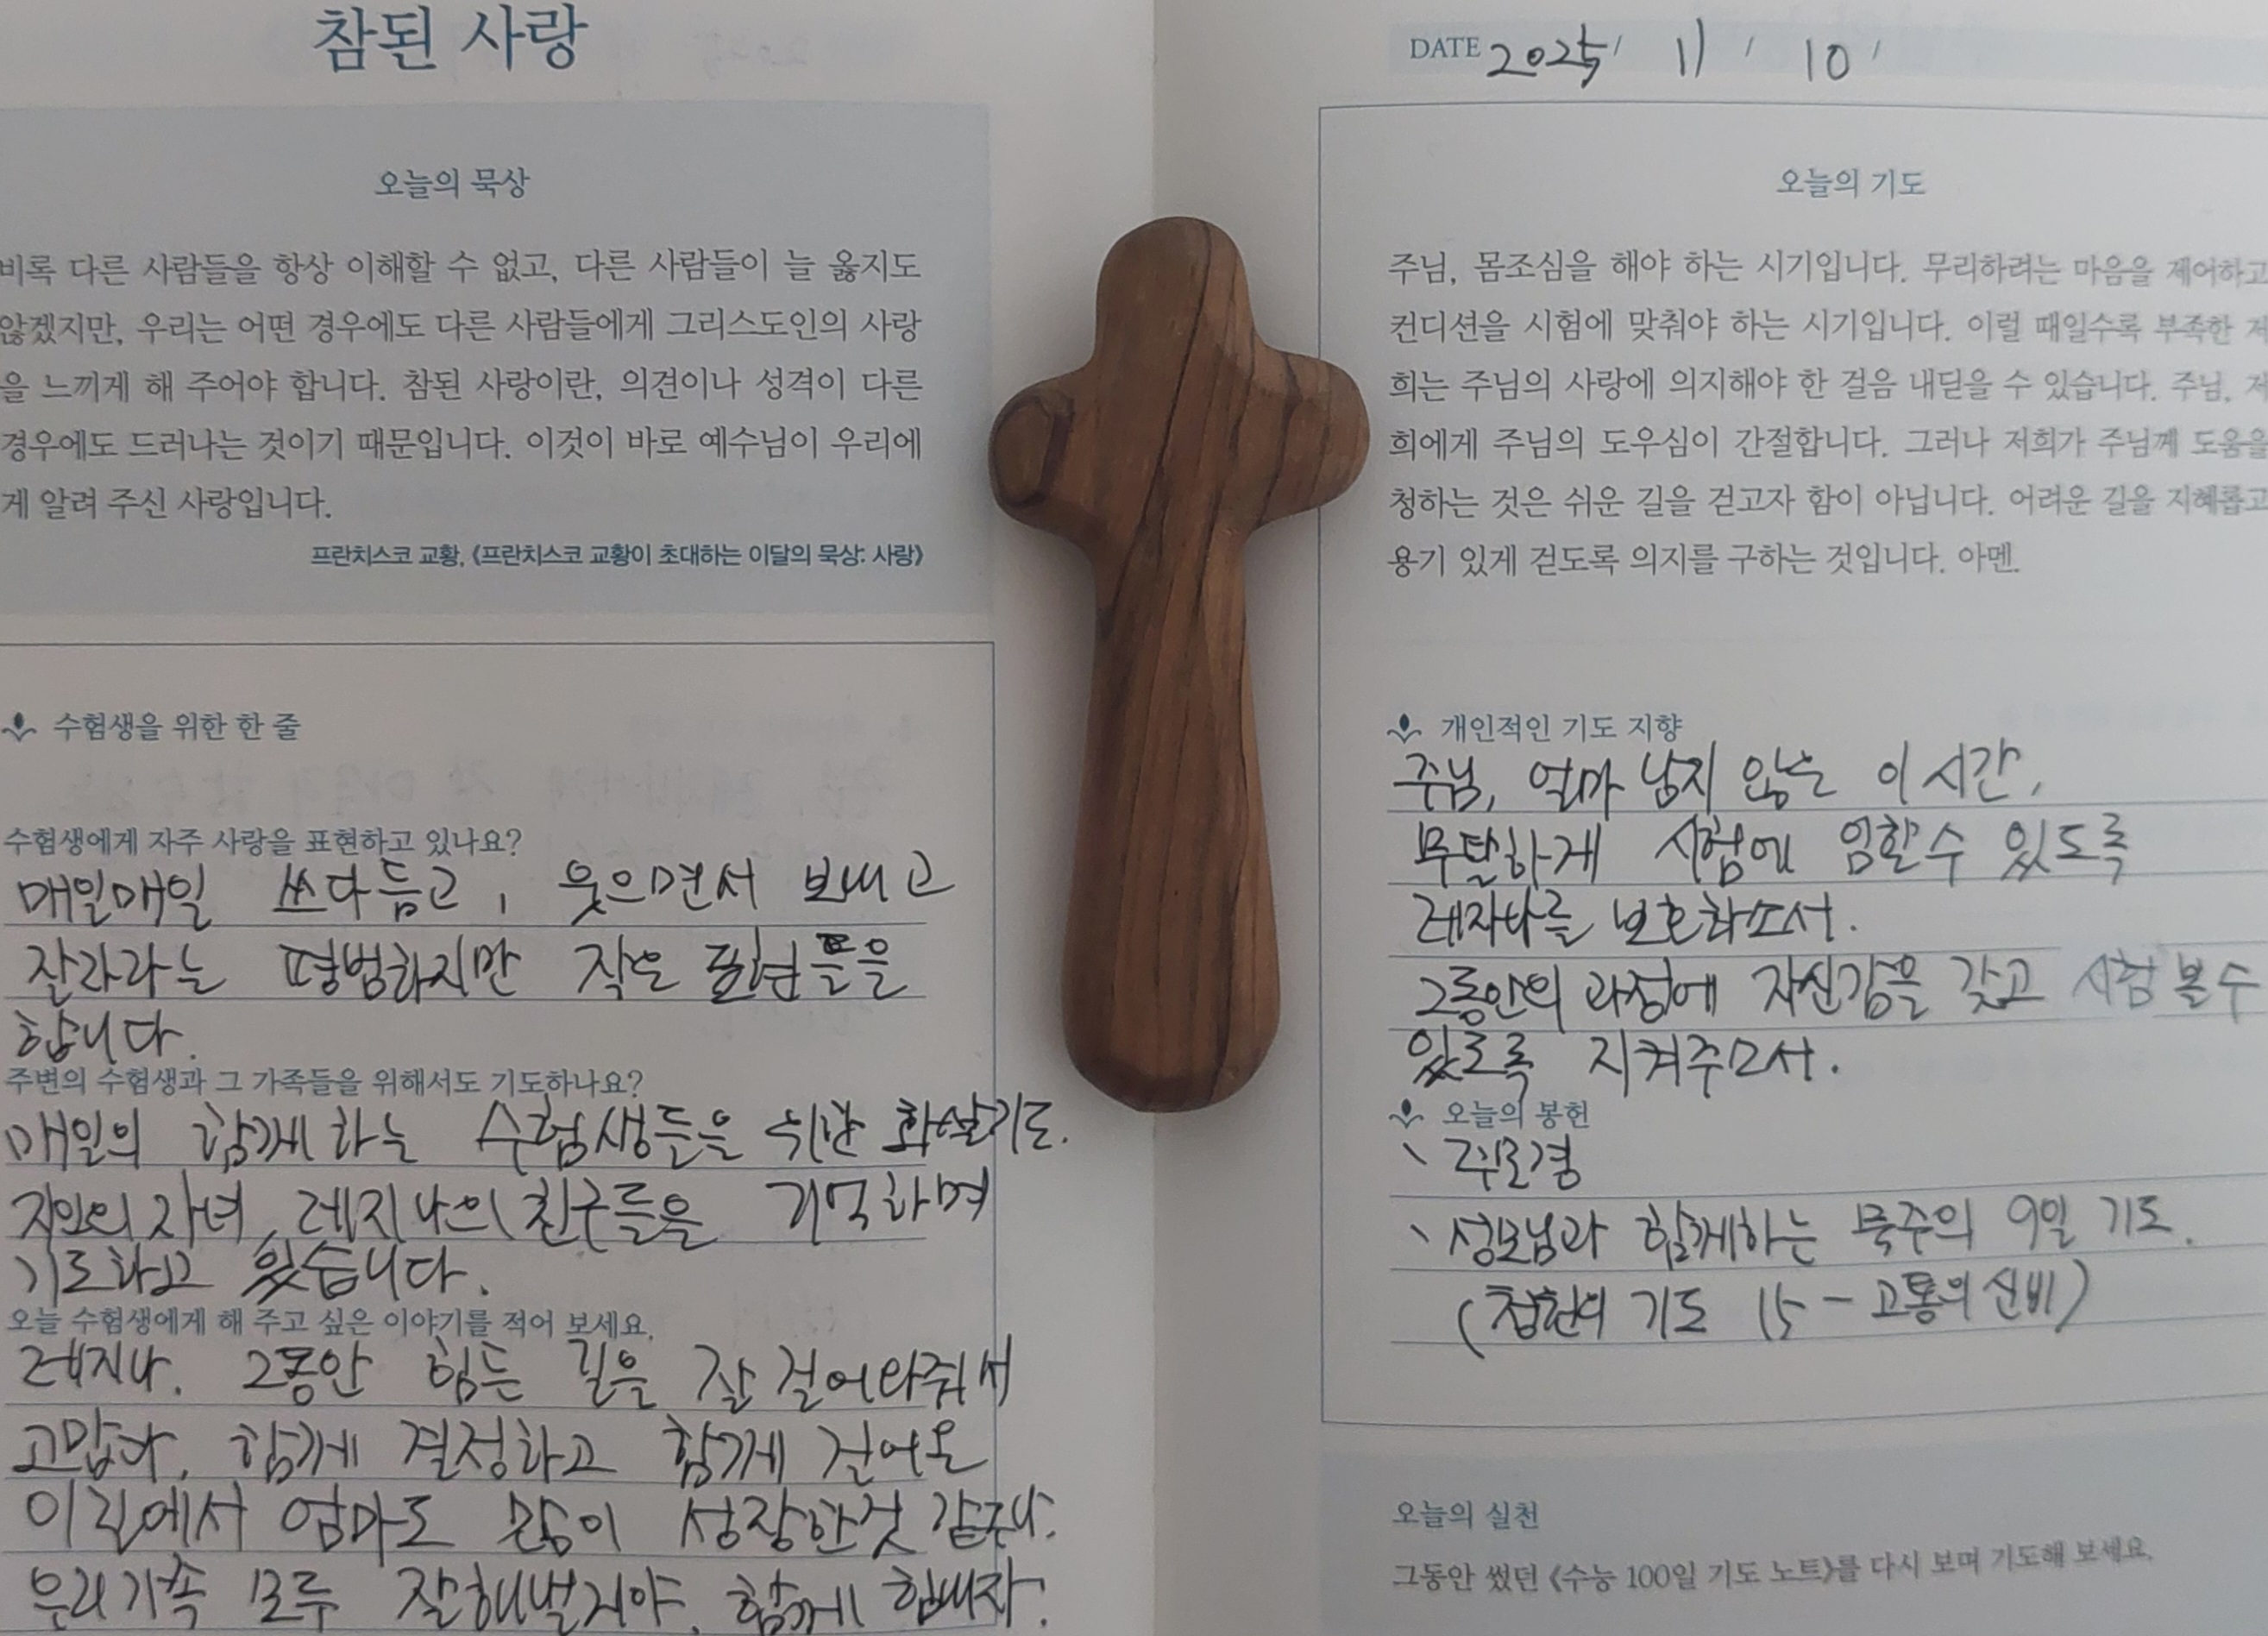 참된 사랑
오늘의 묵상
비록 다른 사람들을 항상 이해할 수 없고, 다른 사람들이 늘 옳지도
않겠지만, 우리는 어떤 경우에도 다른 사람들에게 그리스도인의 사랑
을 느끼게 해 주어야 합니다. 참된 사랑이란, 의견이나 성격이 다른
경우에도 드러나는 것이기 때문입니다. 이것이 바로 예수님이 우리에
게 알려 주신 사랑입니다.
프란치스코 교황, 《프란치스코 교황이 초대하는 이달의 묵상: 사랑》
수험생을 위한 한 줄
수험생에게 자주 사랑을 표현하고 있나요?
매일매일 쓰다듬고, 웃으면서 보내고
잘라라는 평범하지만 작은 표현들을
합니다.
주변의 수험생과 그 가족들을 위해서도 기도하나요?
매일의 함께하는 수험생들을 위한 화살기도.
지인의 자녀, 레지나의 친구들을 기억하며
기도하고 있습니다.
오늘 수험생에게 해 주고 싶은 이야기를 적어 보세요.
레지나. 그동안 힘든 길을 잘 걸어와줘서
고맙다. 함께 결정하고 함께 걸어온
이 길에서 엄마도 많이 성장한것 같구나.
우리가족 모두 잘해낼거야. 함께 힘내자.
DATE 2025 / 11 / 10 /
오늘의 기도
주님, 몸조심을 해야 하는 시기입니다. 무리하려는 마음을 제어하고
컨디션을 시험에 맞춰야 하는 시기입니다. 이럴 때일수록 부족한 저
희는 주님의 사랑에 의지해야 한 걸음 내딛을 수 있습니다. 주님, 저
희에게 주님의 도우심이 간절합니다. 그러나 저희가 주님께 도움을
청하는 것은 쉬운 길을 걷고자 함이 아닙니다. 어려운 길을 지혜롭고
용기 있게 걷도록 의지를 구하는 것입니다. 아멘.
개인적인 기도 지향
주님, 얼마 남지 않은 이 시간,
무탈하게 시험에 임할수 있도록
레지나를 보호하소서.
그동안의 과정에 자신감을 갖고 시험 볼 수
있도록 지켜주소서.
오늘의 봉헌
、주모경
、성모님과 함께하는 묵주의 9일 기도.
(청원의 기도 15 - 고통의 신비)
오늘의 실천
그동안 썼던 《수능 100일 기도 노트》를 다시 보며 기도해 보세요.